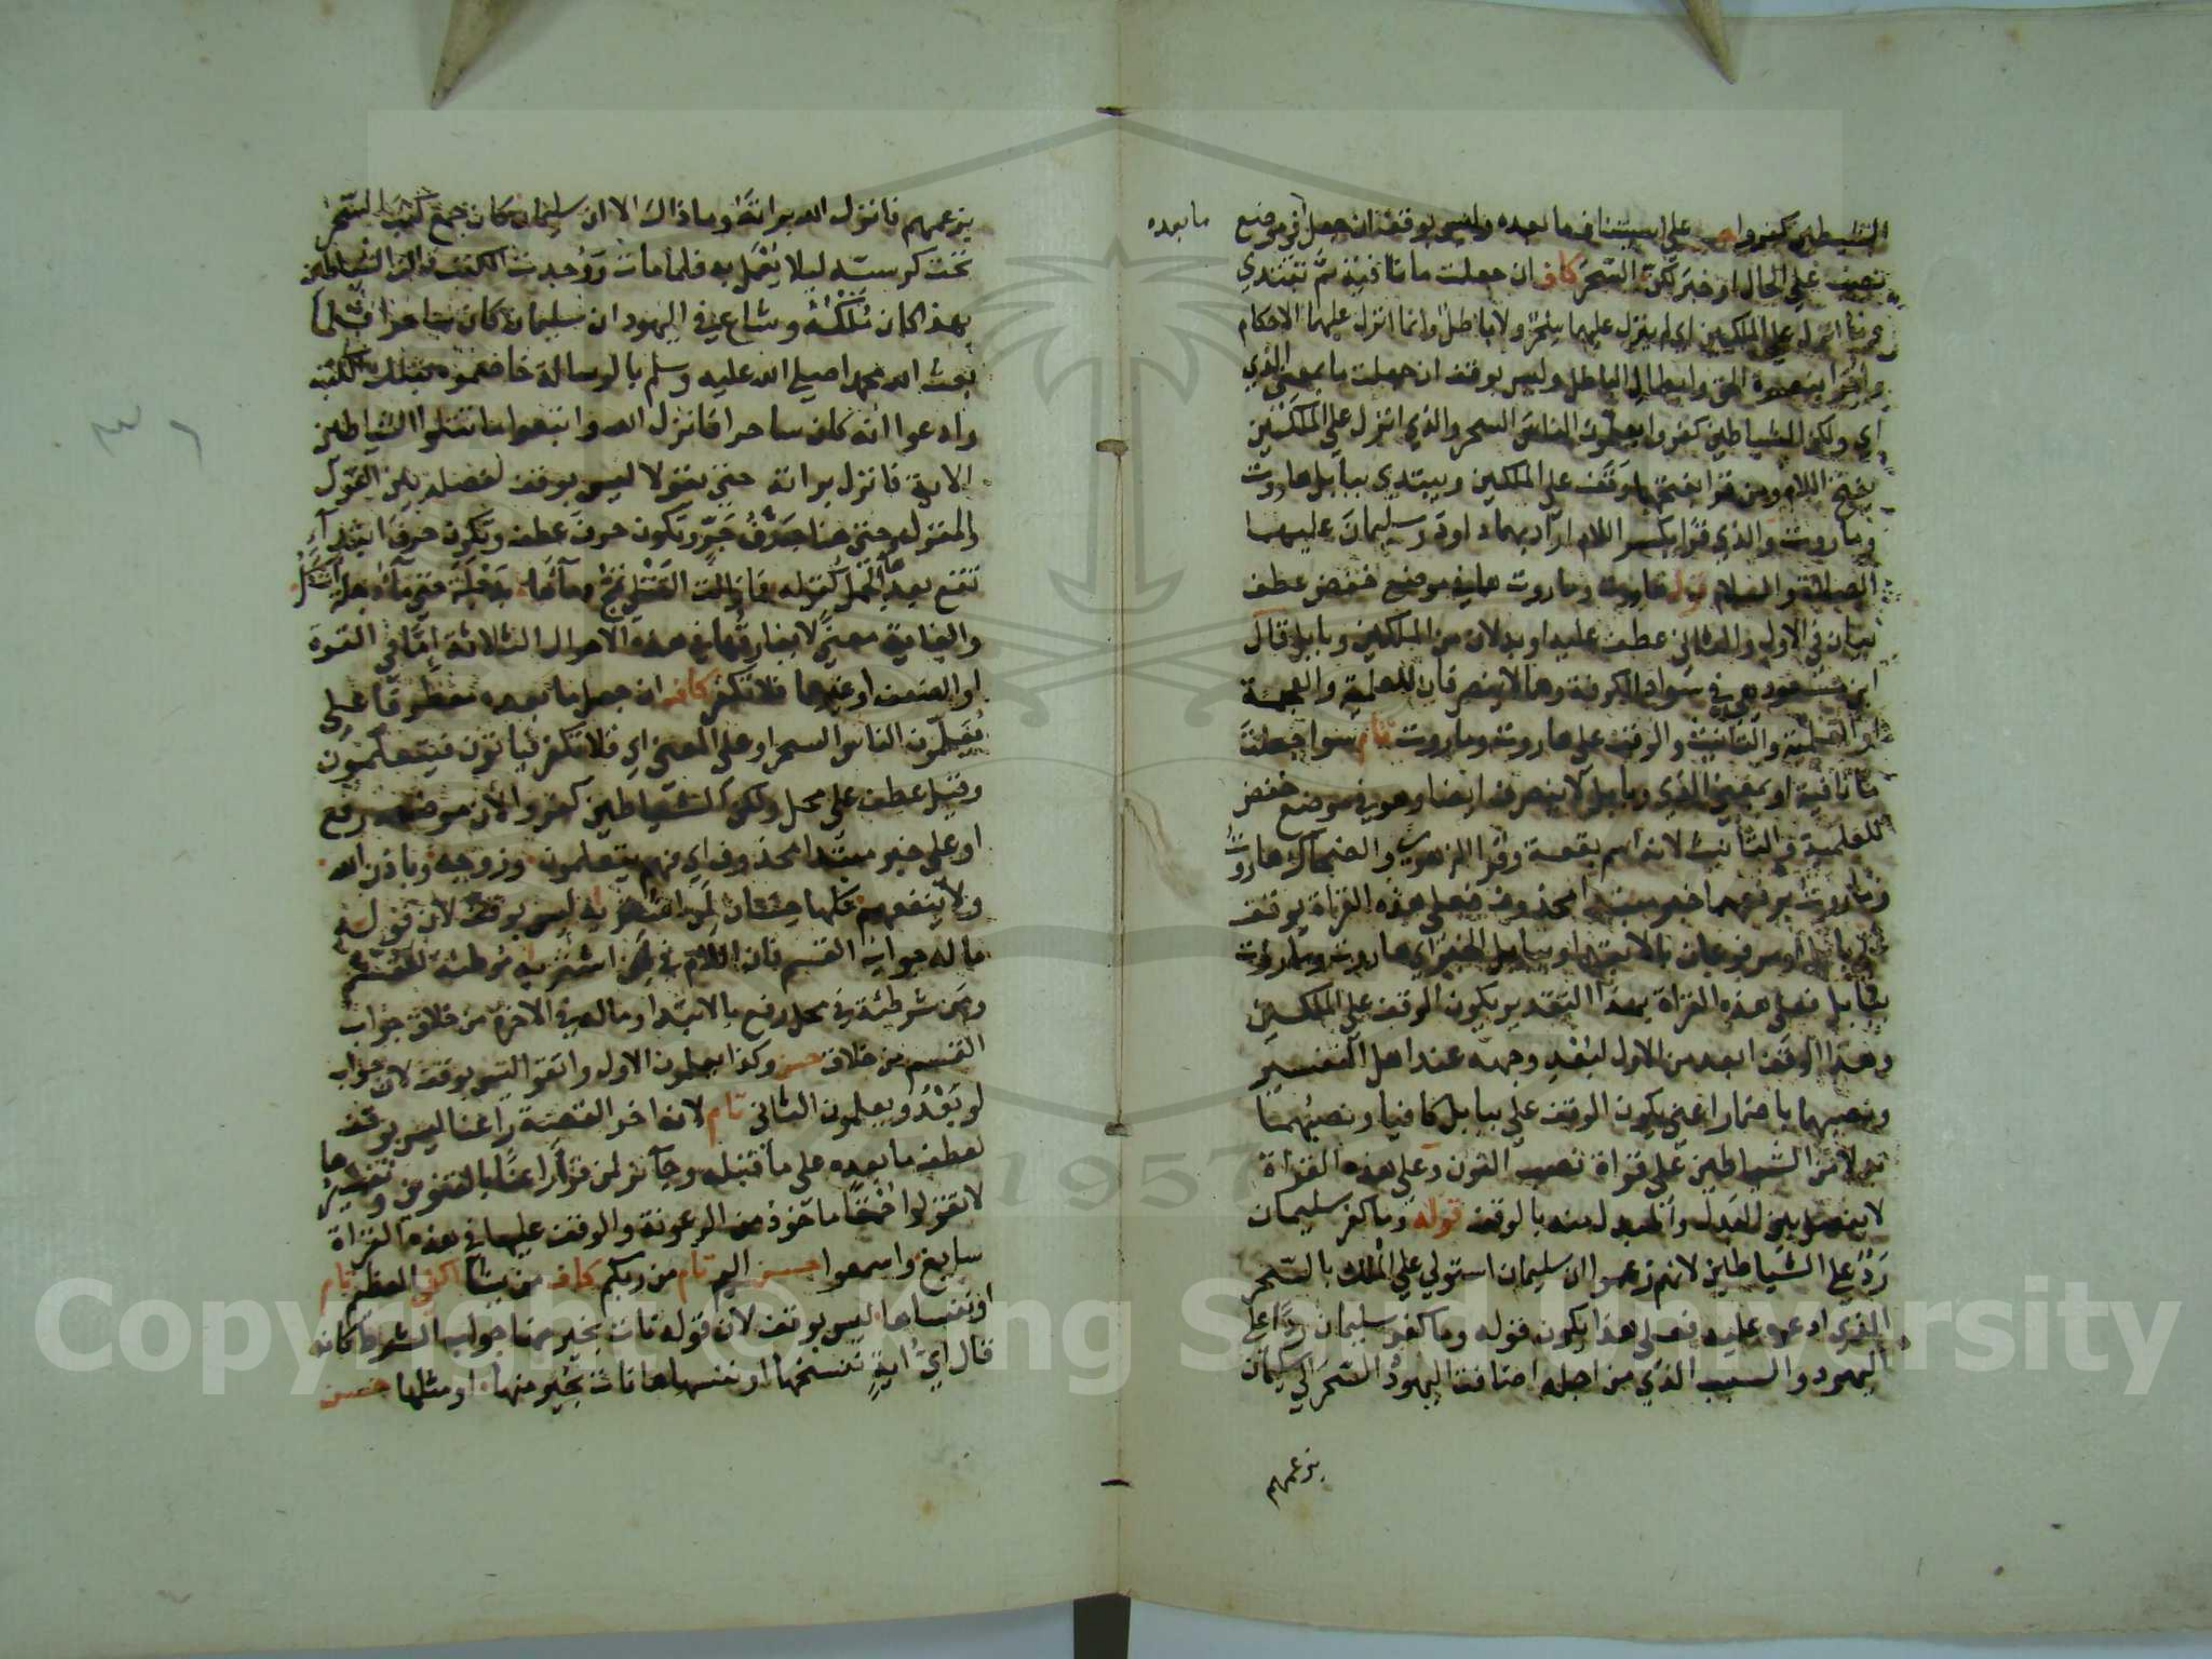 الشيطين كفروا على استيناف ما بعده وليس بوقف ان جعل في موضع
ما بعده
نصب على الحال او خبر لكن السحر كاف ان جعلت ما نافية ثم تبتدي
وما انزل على الملكين اي لم ينزل عليهما سحر ولا باطل وانما انزل عليهما الاحكام
وامرا بنصرة الحق وابطال الباطل وليس بوقف ان جعلت ما بمعنى الذي
اي ولكن الشياطين كفروا يعلمون الناس السحر والذي انزل على الملكين
بفتح اللام ومن قرا بفتحها وقف على الملكين ويبتدي ببابل هاروت
وماروت والذي قرا بكسر اللام اراد بهما داود وسليمان عليهما
الصلاة والسلام قوله هاروت وماروت هما في موضع خفض عطف
بيان في الاول والثاني عطف عليه او بدلان من الملكين وبابل قال
ابن مسعود هي في سواد الكوفة وهما لا ينصرفان للعلمية والعجمة
او العلمية والتانيث والوقف على هاروت وماروت تام سوا جعلت
ما نافية او بمعنى الذي وبابل لا ينصرف ايضا وهو في موضع خفض
للعلمية والتانيث لانه اسم بقعة وقرا الزهري والضحاك هاروت
وماروت برفعهما خبر مبتدا محذوف فعلى هذه القراة يوقف
على بابل او مرفوعان بالابتدا وببابل الخبر اي هاروت وماروت
ببابل فعلى هذه القراة بهذا التقدير يكون الوقف على الملكين
وهذا الوقف ابعد من الاول لبعد وجهه عند اهل التفسير
ونصبهما باضمار اعني يكون الوقف على ببابل كافيا ونصبهما
بدلا من الشياطين على قراة نصب النون وعلى هذه القراة
لا يفصل بين البدل والمبدل منه بالوقف قوله وما كفر سليمان
ردا على الشياطين لانهم زعموا ان سليمان استولى على الملك بالسحر
الذي ادعوه عليه فعلى هذا يكون قوله وما كفر سليمان ردا على
اليهود والسبب الذي من اجله اضافت اليهود السحر الى سليمان
بزعمهم
بزعمهم فانزل الله براته وما ذاك الا ان سليمان كان جمع كتب السحر
تحت كرسيه ليلا يعمل به فلما مات ووجدت الكتب قالت الشياطين
بهذا كان ملكه وشاع في اليهود ان سليمان كان ساحرا فلما
بعث الله محمدا صلى الله عليه وسلم بالرسالة خاصموه بتلك الكتب
وادعوا انه كان ساحرا فانزل الله واتبعوا ما تتلوا الشياطين
الاية فانزل براته حتى يقولا ليس بوقف لفصله بين القول
والمقول وحتى هنا حرف جر وتكون حرف عطف وتكون حرف ابتدا
تقع بعدها الجمل كقوله فما زالت القتلى تمج دماءها بدجلة حتى ماء دجلة اشكل
والغاية معنى لا يفارقها في هذه الاحوال الثلاثة اما في القوة
او الضعف او غيرها فلا تكفر كاف ان جعل ما بعده معطوفا على
يعلمون الناس السحر او على المعنى اي فلا تكفر فيابون فيتعلمون
وقيل عطف على محل ولكن الشياطين كفروا لان موضعه رفع
او على خبر مبتدا محذوف اي فهم يتعلمون وزوجه وباذن الله
ولا ينفعهم كلها حسان لمن اشتراه ليس بوقف لان قوله
ما له جواب القسم فان اللام في لمن اشتراه موطئة للقسم
ومن شرطية في محل رفع بالابتدا وما له في الاخرة من خلاق جواب
القسم من خلاق حسن وكذا يعلمون الاول واتقوا ليس بوقف لان جواب
لو بعد ويعلمون الثاني تام لانه اخر القصة راعنا ليس بوقف
لعطف ما بعده على ما قبله وجائز لمن قرا راعنا بالتنوين وتفسيرها
لا تقولوا حمقا ماخوذ من الرعونة والوقف عليها في هذه القراة
سايغ واسمعوا حسن اليم تام من ربكم كاف من يشا اكفى العظيم تام
او ننساها ليس بوقف لان قوله نات بخير منها جواب الشرط كانه
قال اي اية ننسخها او ننسها نات بخير منها او مثلها حسن